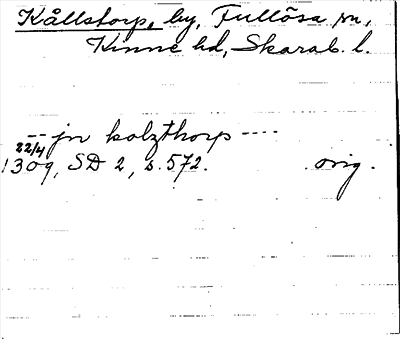 Kållstorp, by, Fullösa sn,
Kinne hd, Skarab. l.
-- jn kolzthorp ----
22/4
1309, SD 2, s. 572. orig.